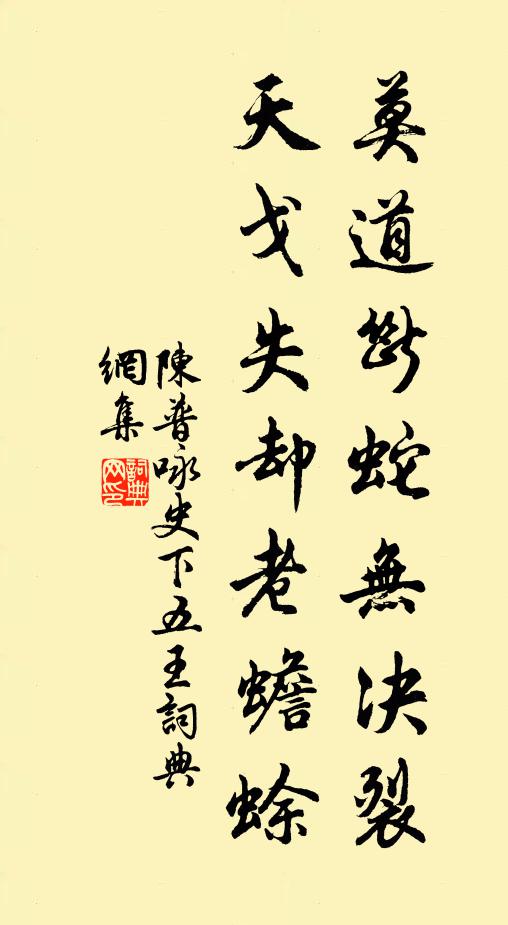 莫道斷蛇無决裂
天戈失却老蟾蜍
陳普咏史下五王詞典
網集
詞典網印